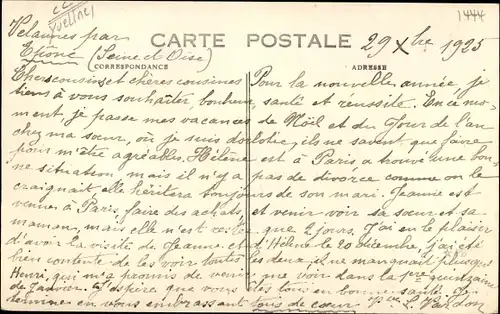 CC
Yvelines
1444
Velannes par
Epône (Seine et Oise)
CARTE POSTALE 29 Xbre 1925
CORRESPONDANCE ADRESSE
Chers cousins et chères cousines Pour la nouvelle année, je
tiens à vous souhaiter, bonheur, santé et reussite. En ce mo-
ment, je passe mes vacances de Noël et du Jour de l'an
chez ma sœur, où je suis dorlotée, ils ne savent que faire
pour m'être agréables. Hélène est à Paris a trouvé une bon-
ne situation mais il n'y a pas de divorce comme on le
craignait elle héritera toujours de son mari. Jeanne est
venue à Paris, faire des achats, et venir voir sa sœur et sa
maman, mais elle n'est restée que 2 jours. J'ai eu le plaisir
d'avoir la visite de Jeanne et d'Hélène le 20 décembre, j'ai été
bien contente de les voir toutes les deux, il ne manquait plus que
Henri, qui m'a promis de venir me voir dans la 1ère quinzaine
de Janvier. J'espère que vous êtes tous en bonne santé. Je
termine en vous embrassant tous de cœur L. Vardon